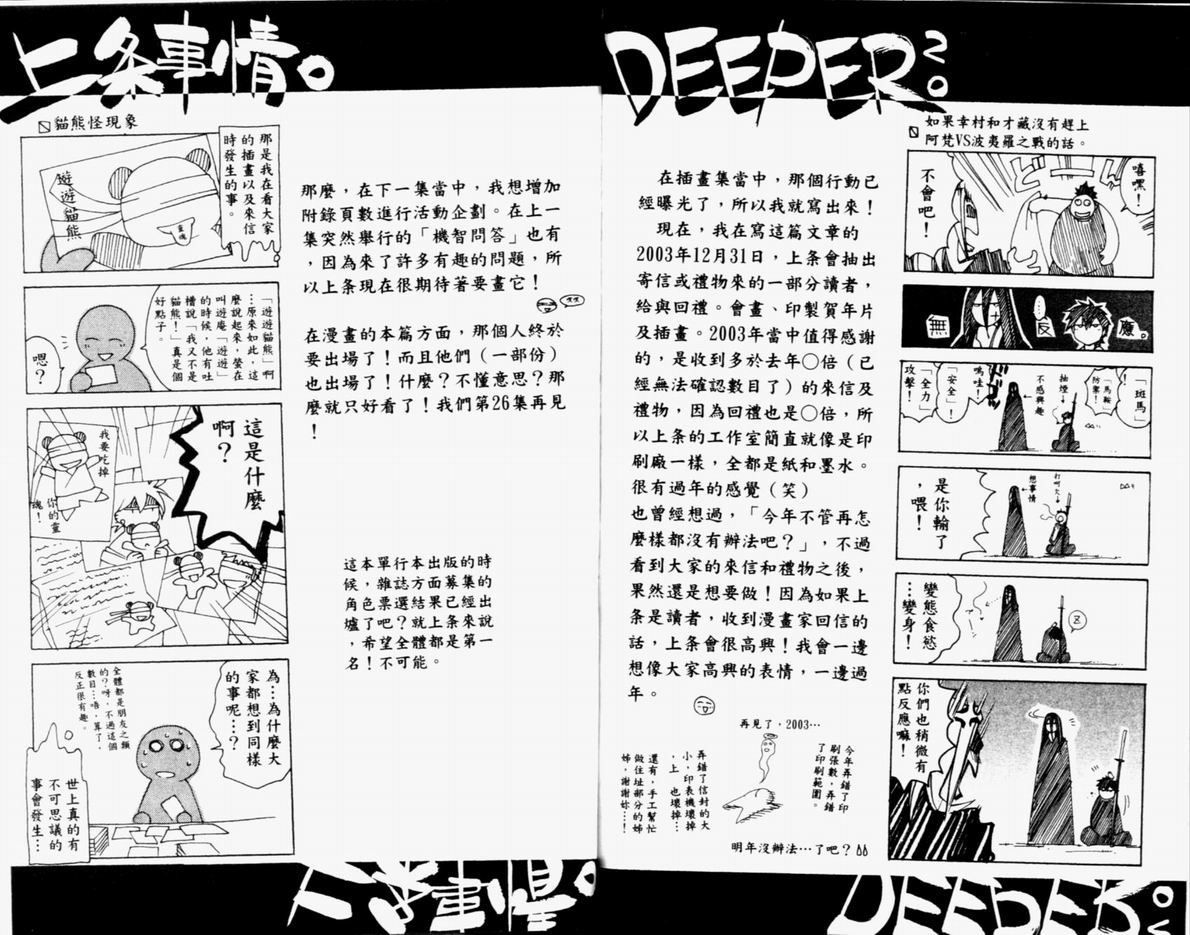 DEEPER 20
如果幸村和才藏沒有趕上
阿梵VS波夷羅之戰的話。
嘻嘿！
不會吧！
無…反應。
「斑馬」！
「馬鞍」
防禦！
嗚哇！
「安全」！
「全力」
攻擊！
抽煙
不感興趣
是你輸了
，喂！
打呵欠
想事情
變態食慾
…變身！
Z
你們也稍微有
點反應嘛！
在插畫集當中，那個行動已
經曝光了，所以我就寫出來！
現在，我在寫這篇文章的
2003年12月31日，上条會抽出
寄信或禮物來的一部分讀者，
給與回禮。會畫、印製賀年片
及插畫。2003年當中值得感謝
的，是收到多於去年○倍（已
經無法確認數目了）的來信及
禮物，因為回禮也是○倍，所
以上条的工作室簡直就像是印
刷廠一樣，全都是紙和墨水。
很有過年的感覺（笑）
也曾經想過，「今年不管再怎
麼樣都沒有辦法吧？」，不過
看到大家的來信和禮物之後，
果然還是想要做！因為如果上
条是讀者，收到漫畫家回信的
話，上条會很高興！我會一邊
想像大家高興的表情，一邊過
年。
再見了，2003…
今年弄錯了印
刷張數，弄錯
了印刷範圍。
弄錯了信封的大
小，印表機壞掉
，上　也壞掉…
還有，手工幫忙
做住址部分的姊
姊，謝謝妳…！
明年沒辦法…了吧？
上条事情。
貓熊怪現象
那是我在看大家
的插畫以及來信
時發生的事。
遊遊貓熊
靈魂
「遊遊貓熊」啊
…原來如此，這
麼說起來，螢在
叫遊庵「遊遊」
的時候，他有吐
槽說「我又不是
貓熊！」真是個
好點子。
嗯？
這是什麼
啊？
我要吃掉
你的靈
魂！
為…為什麼大
家都想到同樣
的事呢…？
全體都是朋友之類
的？呀，不過這個
數目…唔，算了，
反正很有趣。
世上真的有
不可思議的
事會發生…
那麼，在下一集當中，我想增加
附錄頁數進行活動企劃。在上一
集突然舉行的「機智問答」也有
，因為來了許多有趣的問題，所
以上条現在很期待著要畫它！
在漫畫的本篇方面，那個人終於
要出場了！而且他們（一部份）
也出場了！什麼？不懂意思？那
麼就只好看了！我們第26集再見
！
這本單行本出版的時
候，雜誌方面募集的
角色票選結果已經出
爐了吧？就上条來說
，希望全體都是第一
名！不可能。
上条事情。
DEEPER 20